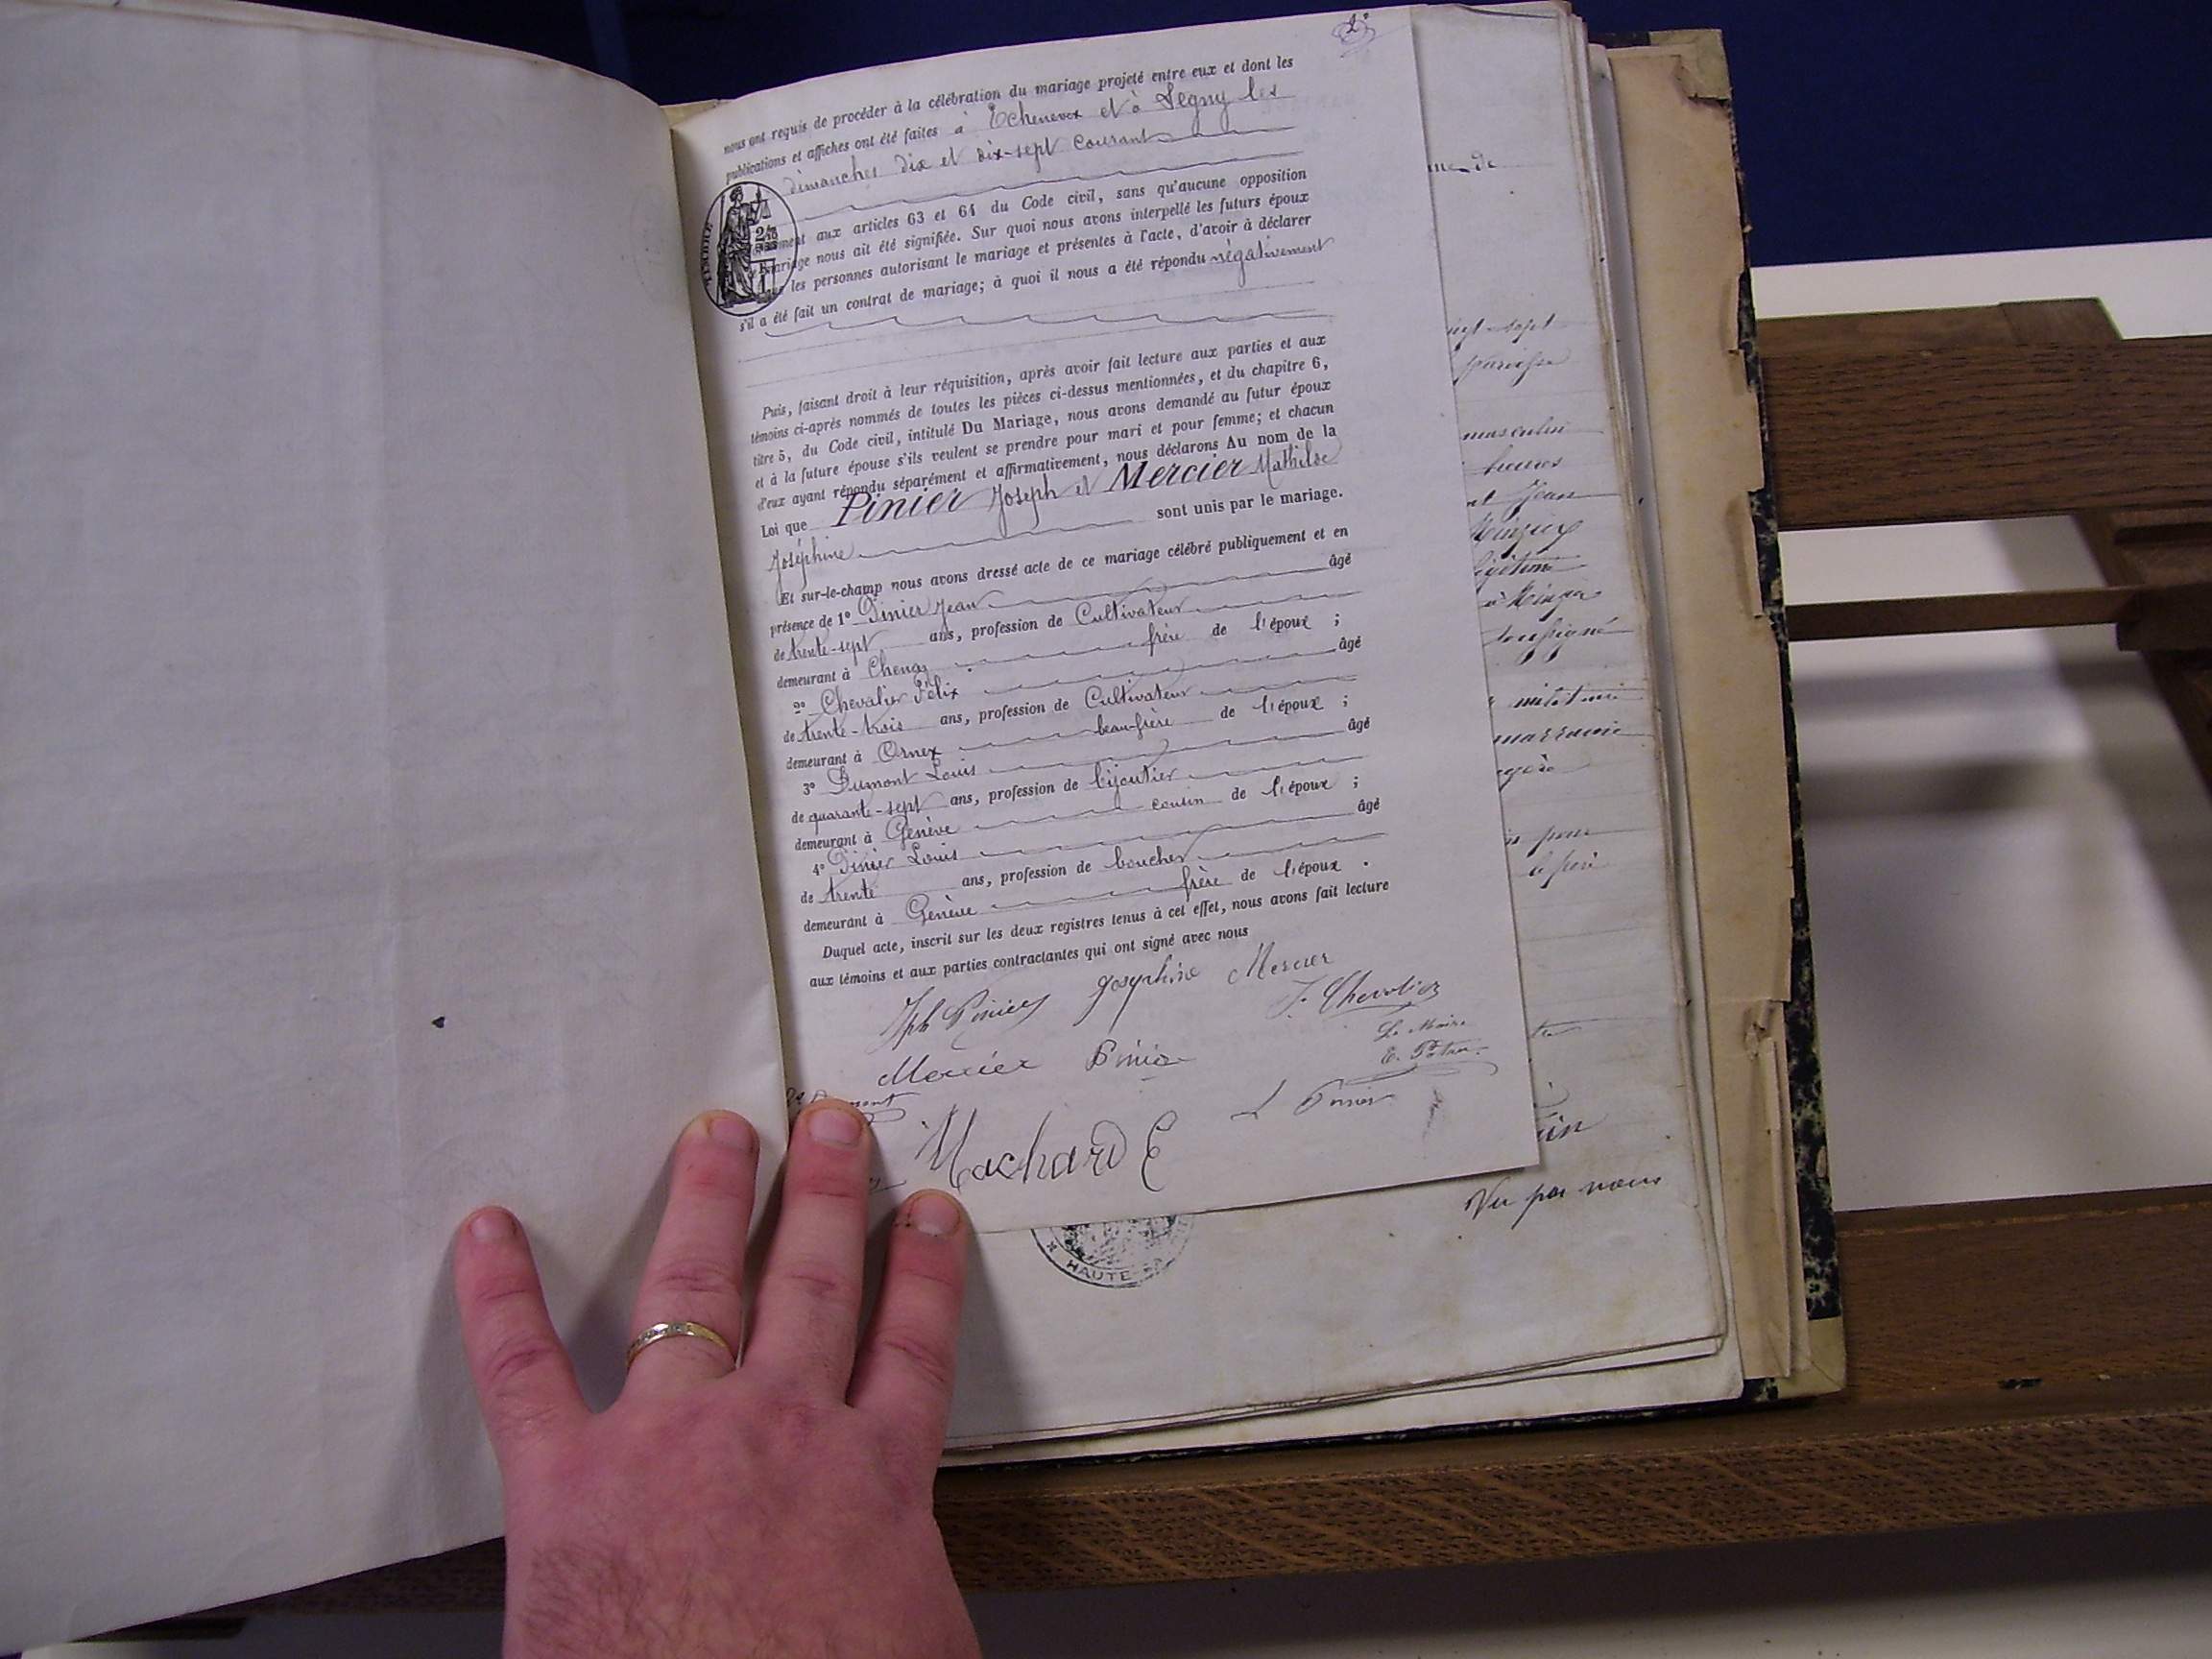 2º
nous ont requis de procéder à la célébration du mariage projeté entre eux et dont les
publications et affiches ont été faites à Echenevex et à Segny les
dimanches dix et dix-sept courant
aux articles 63 et 64 du Code civil, sans qu'aucune opposition
mariage nous ait été signifiée. Sur quoi nous avons interpellé les futurs époux
les personnes autorisant le mariage et présentes à l'acte, d'avoir à déclarer
s'il a été fait un contrat de mariage; à quoi il nous a été répondu négativement
Puis, faisant droit à leur réquisition, après avoir fait lecture aux parties et aux
témoins ci-après nommés de toutes les pièces ci-dessus mentionnées, et du chapitre 6,
titre 5, du Code civil, intitulé Du Mariage, nous avons demandé au futur époux
et à la future épouse s'ils veulent se prendre pour mari et pour femme; et chacun
d'eux ayant répondu séparément et affirmativement, nous déclarons Au nom de la
Loi que Pinier Joseph et Mercier Mathilde
Joséphine sont unis par le mariage.
Et sur-le-champ nous avons dressé acte de ce mariage célébré publiquement et en
présence de 1º Pinier Jean âgé
de trente-sept ans, profession de Cultivateur
demeurant à frère de l'époux ;
2º Chevalier Félix âgé
de trente-trois ans, profession de Cultivateur
demeurant à Ornex beau-frère de l'époux ;
3º Dumont Louis âgé
de quarante-sept ans, profession de bijoutier
demeurant à Genève cousin de l'époux ;
4º Pinier Louis âgé
de trente ans, profession de boucher
demeurant à Genève frère de l'époux .
Duquel acte, inscrit sur les deux registres tenus à cet effet, nous avons fait lecture
aux témoins et aux parties contractantes qui ont signé avec nous
Jph Pinier Joséphine Mercier
F. Chevalier
Le Maire
Mercier Pinier
L Pinier
Machard E
Vu par nous
HAUTE
TIMBRE